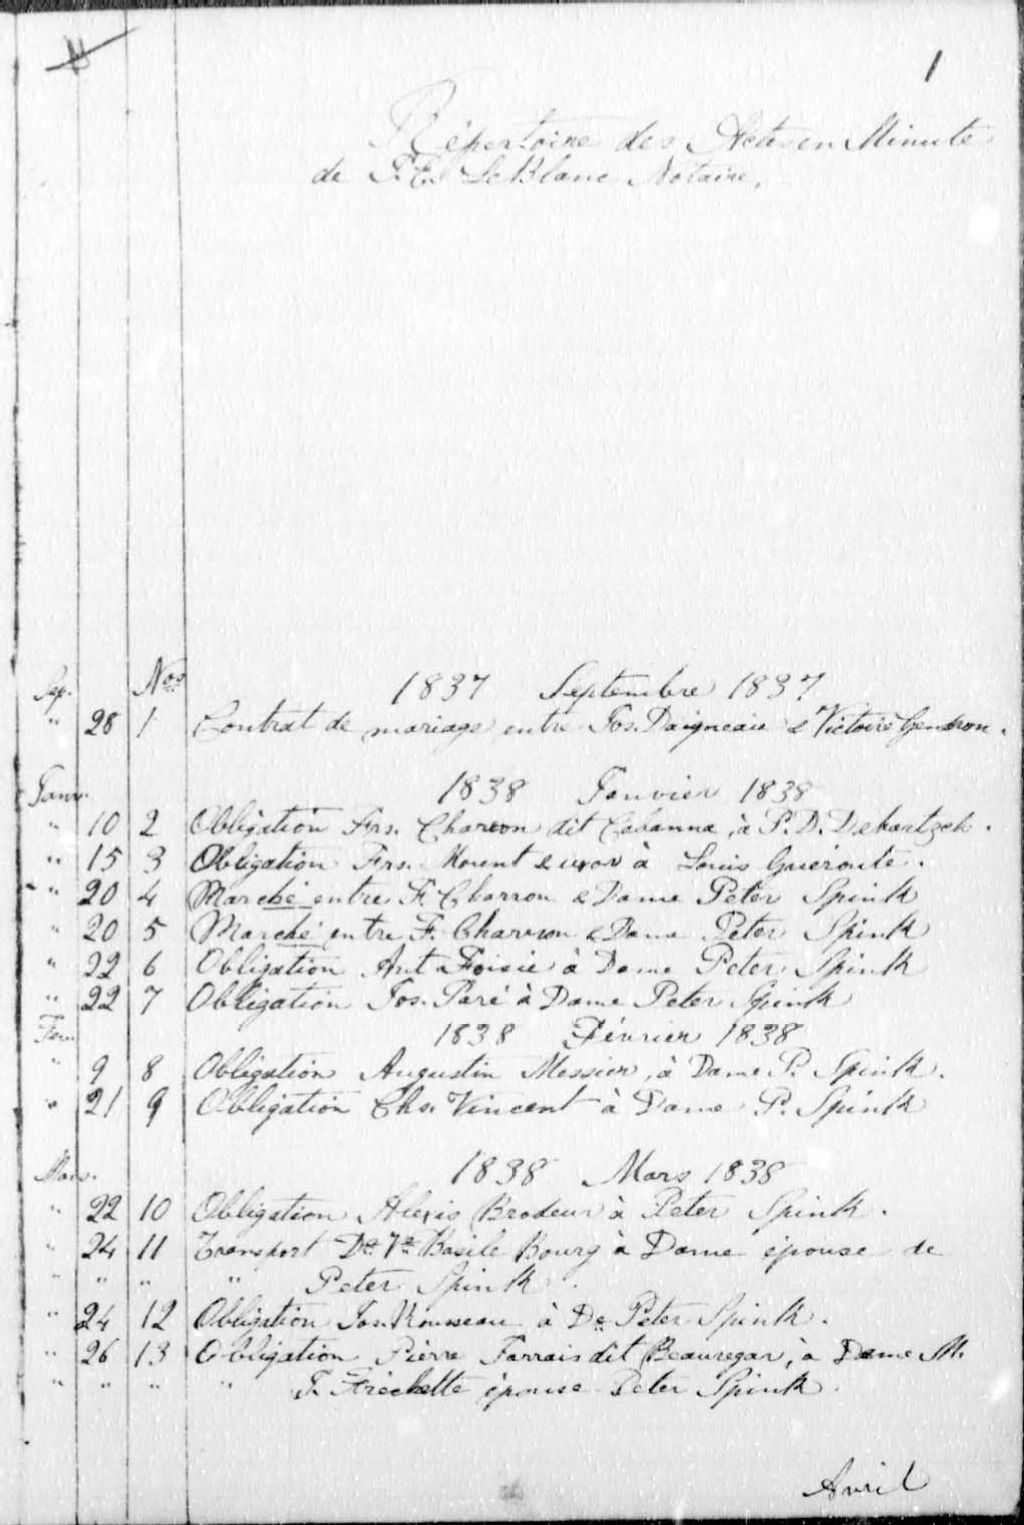 1
Répertoire des Actes en Minute
de F. E. LeBlanc Notaire,
Nos
Sep. 1837 Septembre 1837
" 28 1 Contrat de mariage entre Jos. Daigneau & Victoire Gendron.
Janv. 1838 Janvier 1838
" 10 2 Obligation Frs. Charron dit Cabanna, à P. D. Debartzch.
" 15 3 Obligation Frs. Morent & uxor à Louis Guéroute.
" 20 4 Marché entre F. Charron & Dame Peter Spink
" 20 5 Marché entre F. Charron & Dame Peter Spink
" 22 6 Obligation Ant. Foisie à Dame Peter Spink
" 22 7 Obligation Jos. Paré à Dame Peter Spink
Fev. 1838 Février 1838
" 9 8 Obligation Augustin Messier, à Dame P. Spink.
" 21 9 Obligation Chs. Vincent à Dame P. Spink
Mars. 1838 Mars 1838
" 22 10 Obligation Alexis Brodeur à Peter Spink.
" 24 11 Transport De. Ve. Basile Bourg à Dame épouse de
" " " " Peter Spink.
" 24 12 Obligation Jos. Rousseau à De Peter Spink.
" 26 13 Obligation Pierre Jarrais dit Beauregar, à Dame M.
" " " " J. Fréchette épouse Peter Spink.
Avril